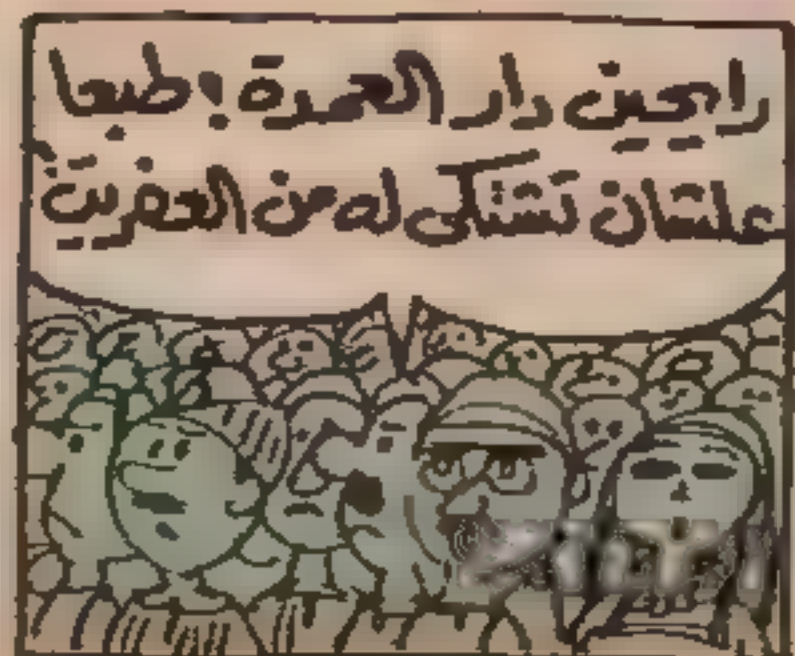 رايحين دار العمدة! طبعا
علشان تشتكى له من العفريت